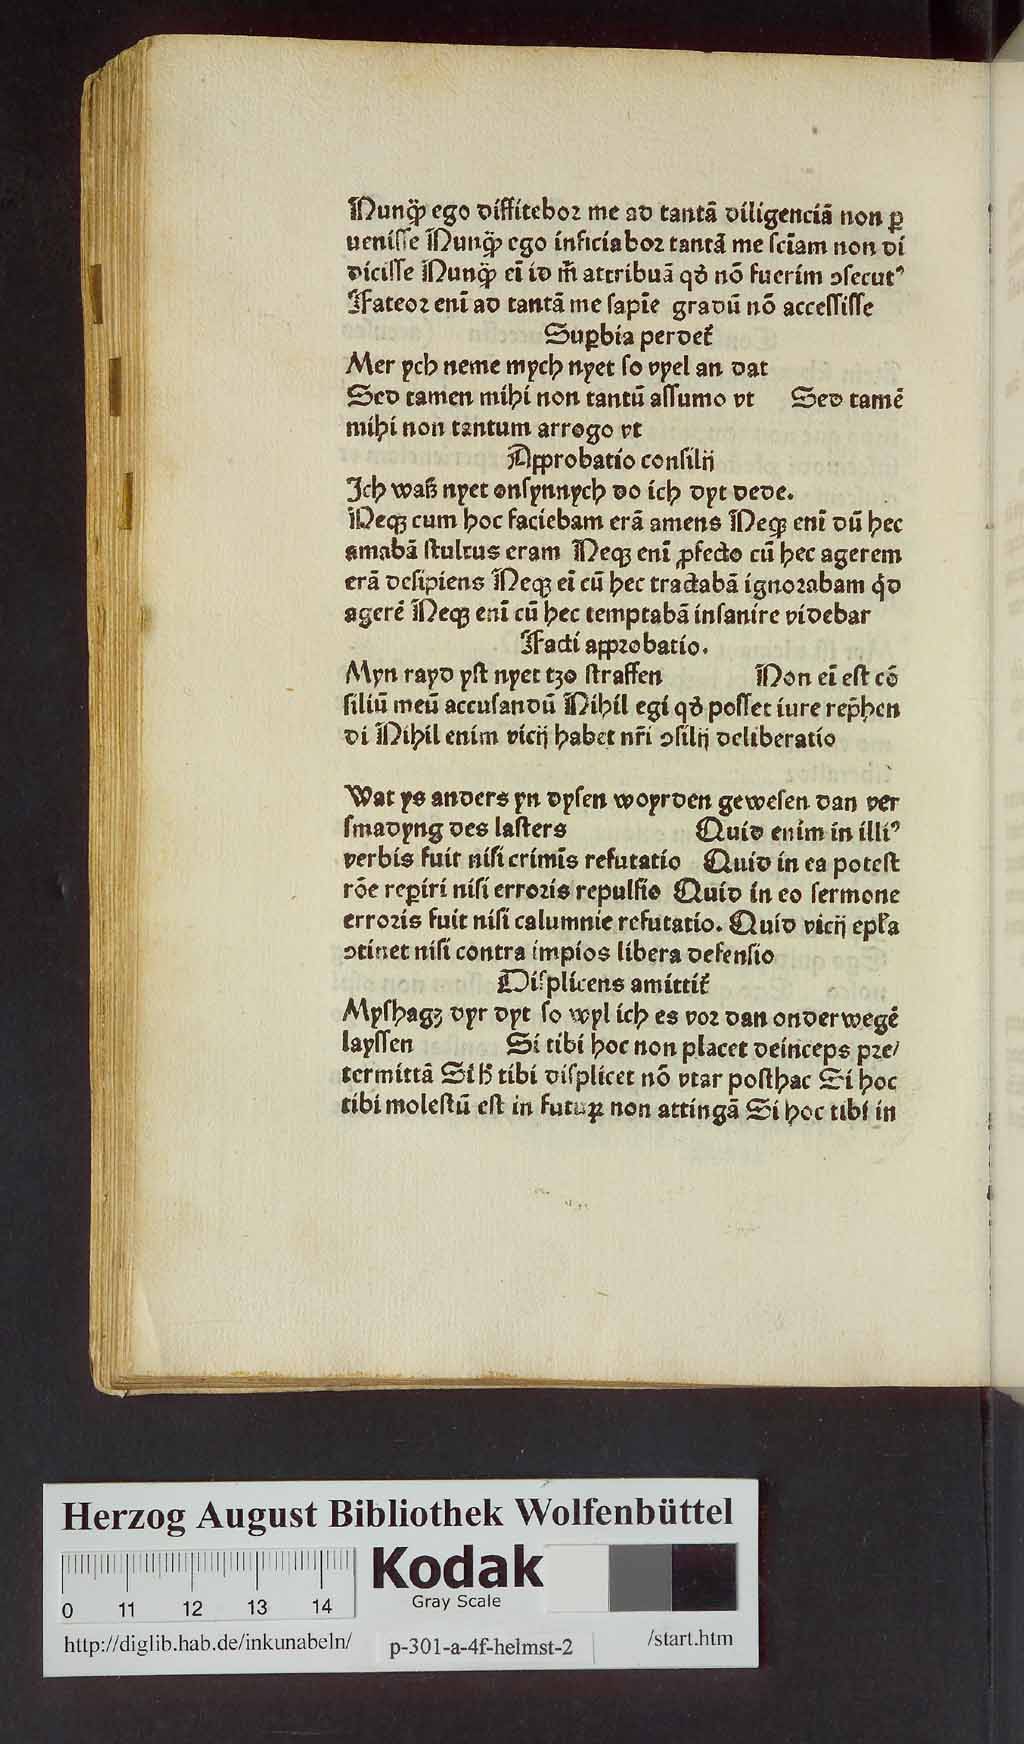 Nunq̃ꝫ ego diffitebor me ad tantā diligenciā non ꝑ
uenisse Nunq̃ꝫ ego inficiabor tantā me sciam non di
dicisse Nunq̃ꝫ ei̅ id m̅ attribuā qd̕ nō fuerim ꝯsecutꝰ
Fateor eni̅ ad tantā me sapi̅e gradū nō accessisse
Suꝑbia perdet᷑
Mer ych neme mych nyet so vyel an dat
Sed tamen mihi non tantū assumo vt Sed tamē
mihi non tantum arrogo vt
Aꝓprobatio consilij
Ich waß nyet onsynnych do ich dyt dede.
Neqꝫ cum hoc faciebam erā amens Neqꝫ eni̅ dū hec
amabā stultus eram Neqꝫ eni̅ ꝓfecto cū hec agerem
erā desipiens Neqꝫ ei̅ cū hec tractabā ignorabam qd̕
agerē Neqꝫ eni̅ cū hec temptabā insanire videbar
Facti approbatio.
Myn rayd yst nyet tzo straffen Non ei̅ est cō
siliū meū accusandū Nihil egi qd̕ posset iure rep̄hen
di Nihil enim vicij habet nr̄i ꝯsilij deliberatio
Wat ys anders yn dysen woyrden gewesen dan ver
smadyng des lasters Quid enim in illiꝰ
verbis fuit nisi crimi̅s refutatio Quid in ea potest
rōe reꝑiri nisi erroris repulsio Quid in eo sermone
erroris fuit nisi calumnie refutatio. Quid vicij epl̄a
ꝯtinet nisi contra impios libera defensio
Displicens amittit᷑
Myshagꝫ dyr dyt so wyl ich es vor dan onderwegē
layssen Si tibi hoc non placet deinceps pre/
termittā Si h̄ tibi displicet nō vtar posthac Si hoc
tibi molestū est in futuꝝ non attingā Si hoc tibi in
Herzog August Bibliothek Wolfenbüttel
Kodak
Gray Scale
0 11 12 13 14
http://diglib.hab.de/inkunabeln/ p-301-a-4f-helmst-2 /start.htm